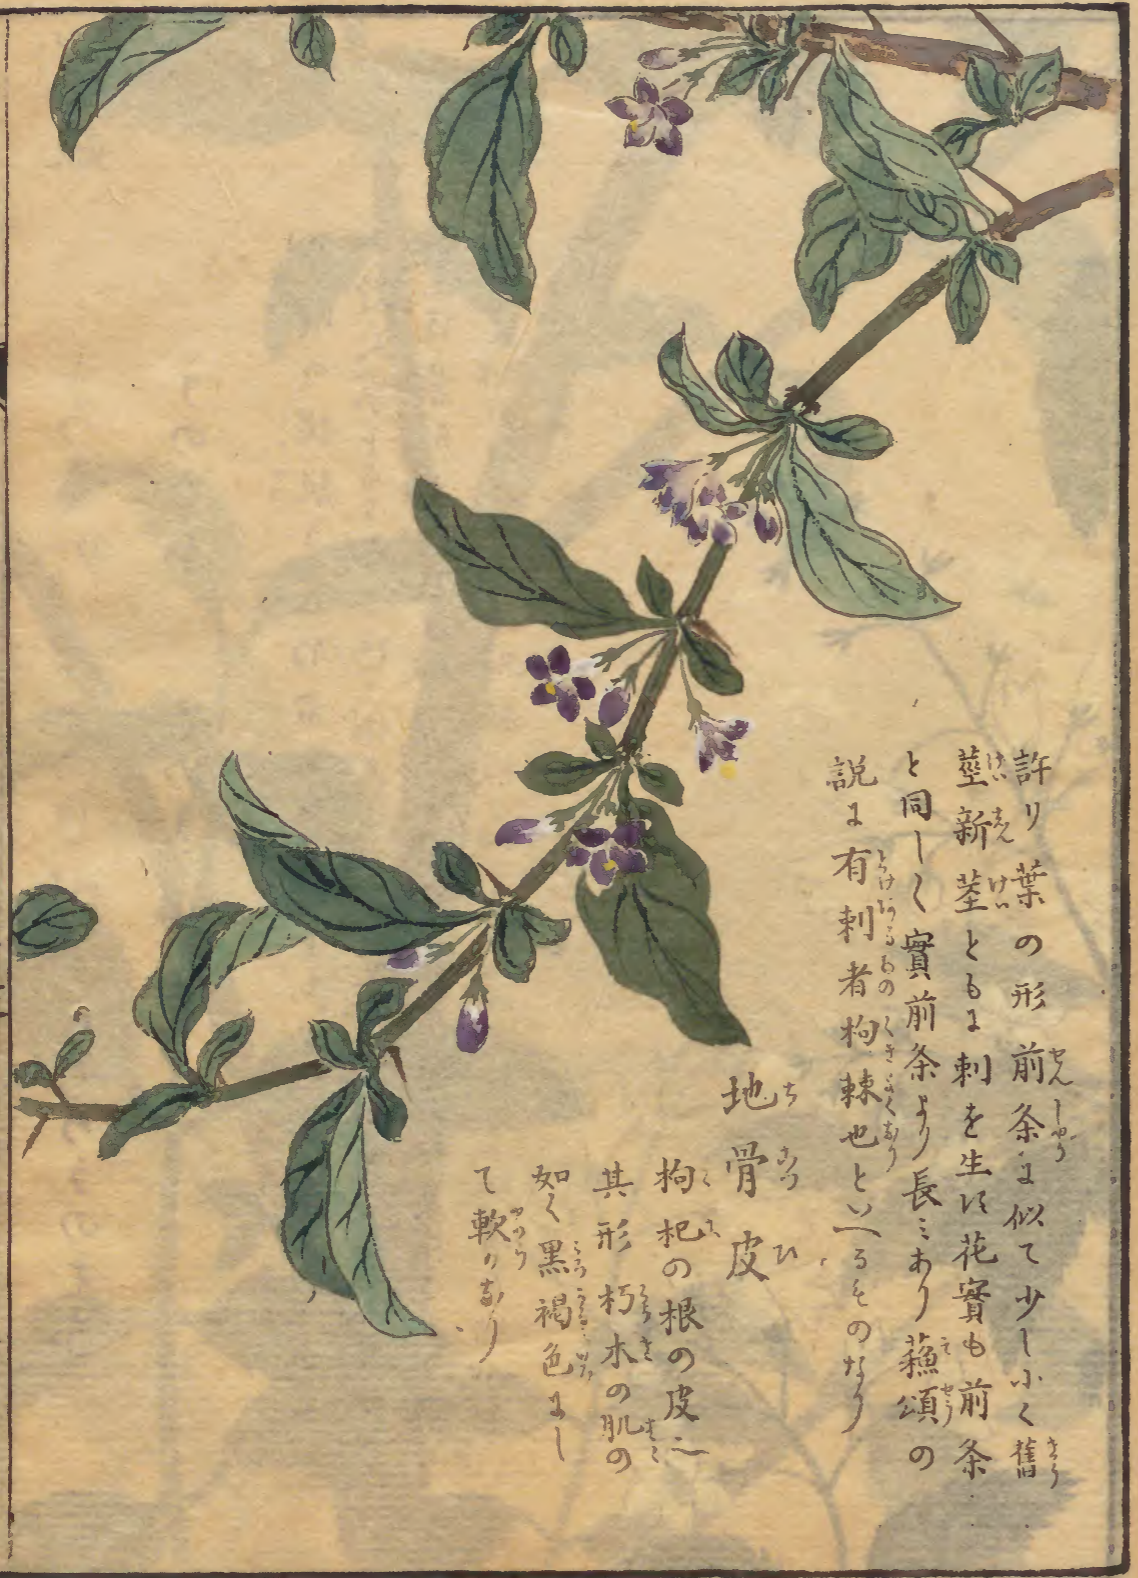 許り葉の形前条に似て少し小く舊
莖新莖ともに刺を生す花實も前条
と同しく實前条より長ミあり蘓頌の
説に有刺者枸棘也といへるものなり
地骨皮
枸杞の根の皮也
其形朽木の肌の
如く黒褐色にし
て軟か也